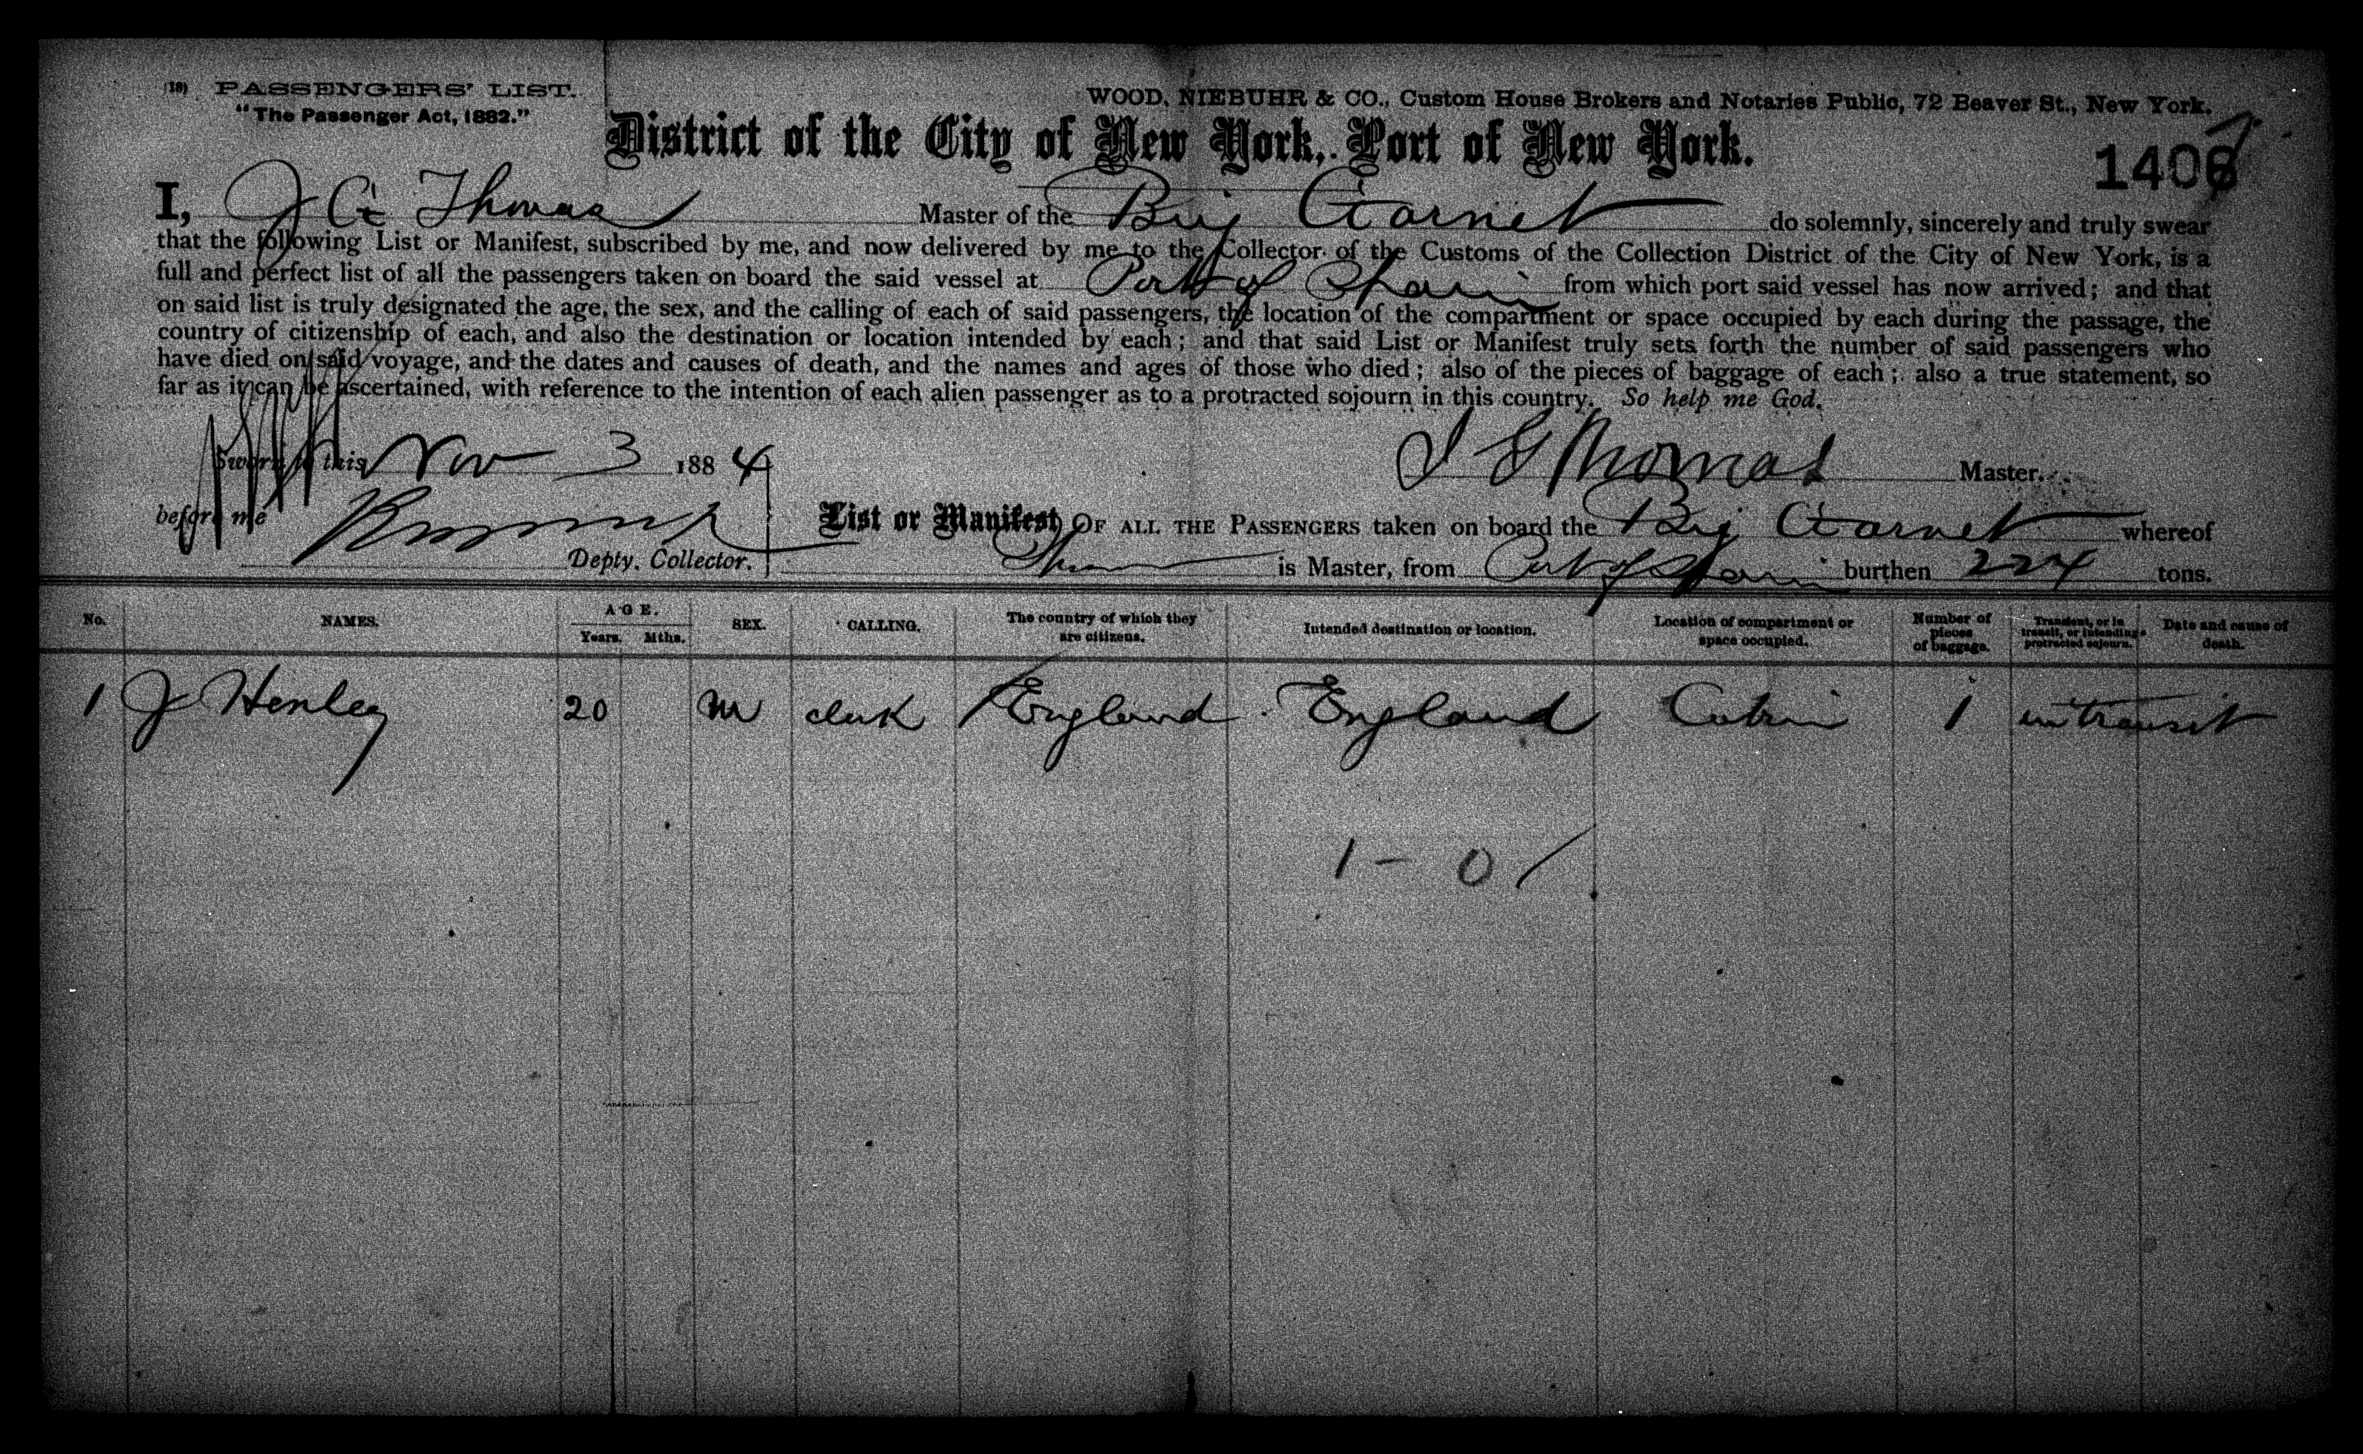 (18) PASSENGERS' LIST.
"The Passenger Act, 1882."
WOOD, NIEBUHR & CO., Custom House Brokers and Notaries Public, 72 Beaver St., New York.
District of the City of New York, Port of New York.
1406 7
I, J G Thomas Master of the Brig Garnet do solemnly, sincerely and truly swear
that the following List or Manifest, subscribed by me, and now delivered by me to the Collector of the Customs of the Collection District of the City of New York, is a
full and perfect list of all the passengers taken on board the said vessel at Port of Spain from which port said vessel has now arrived; and that
on said list is truly designated the age, the sex, and the calling of each of said passengers, the location of the compartment or space occupied by each during the passage, the
country of citizenship of each, and also the destination or location intended by each; and that said List or Manifest truly sets forth the number of said passengers who
have died on said voyage, and the dates and causes of death, and the names and ages of those who died; also of the pieces of baggage of each; also a true statement, so
far as it can be ascertained, with reference to the intention of each alien passenger as to a protracted sojourn in this country. So help me God.
Sworn to this Nov 3 1884 J G Thomas Master.
before me
Depty. Collector.
List or Manifest OF ALL THE PASSENGERS taken on board the Brig Garnet whereof
Thomas is Master, from Port of Spain burthen 224 tons.
No. NAMES. AGE. Years. Mths. SEX. CALLING. The country of which they are citizens. Intended destination or location. Location of compartment or space occupied. Number of pieces of baggage. Transient, or in transit, or intending protracted sojourn. Date and cause of death.
1 J Henley 20 M clerk England England Cabin 1 in transit
1 - 0 /